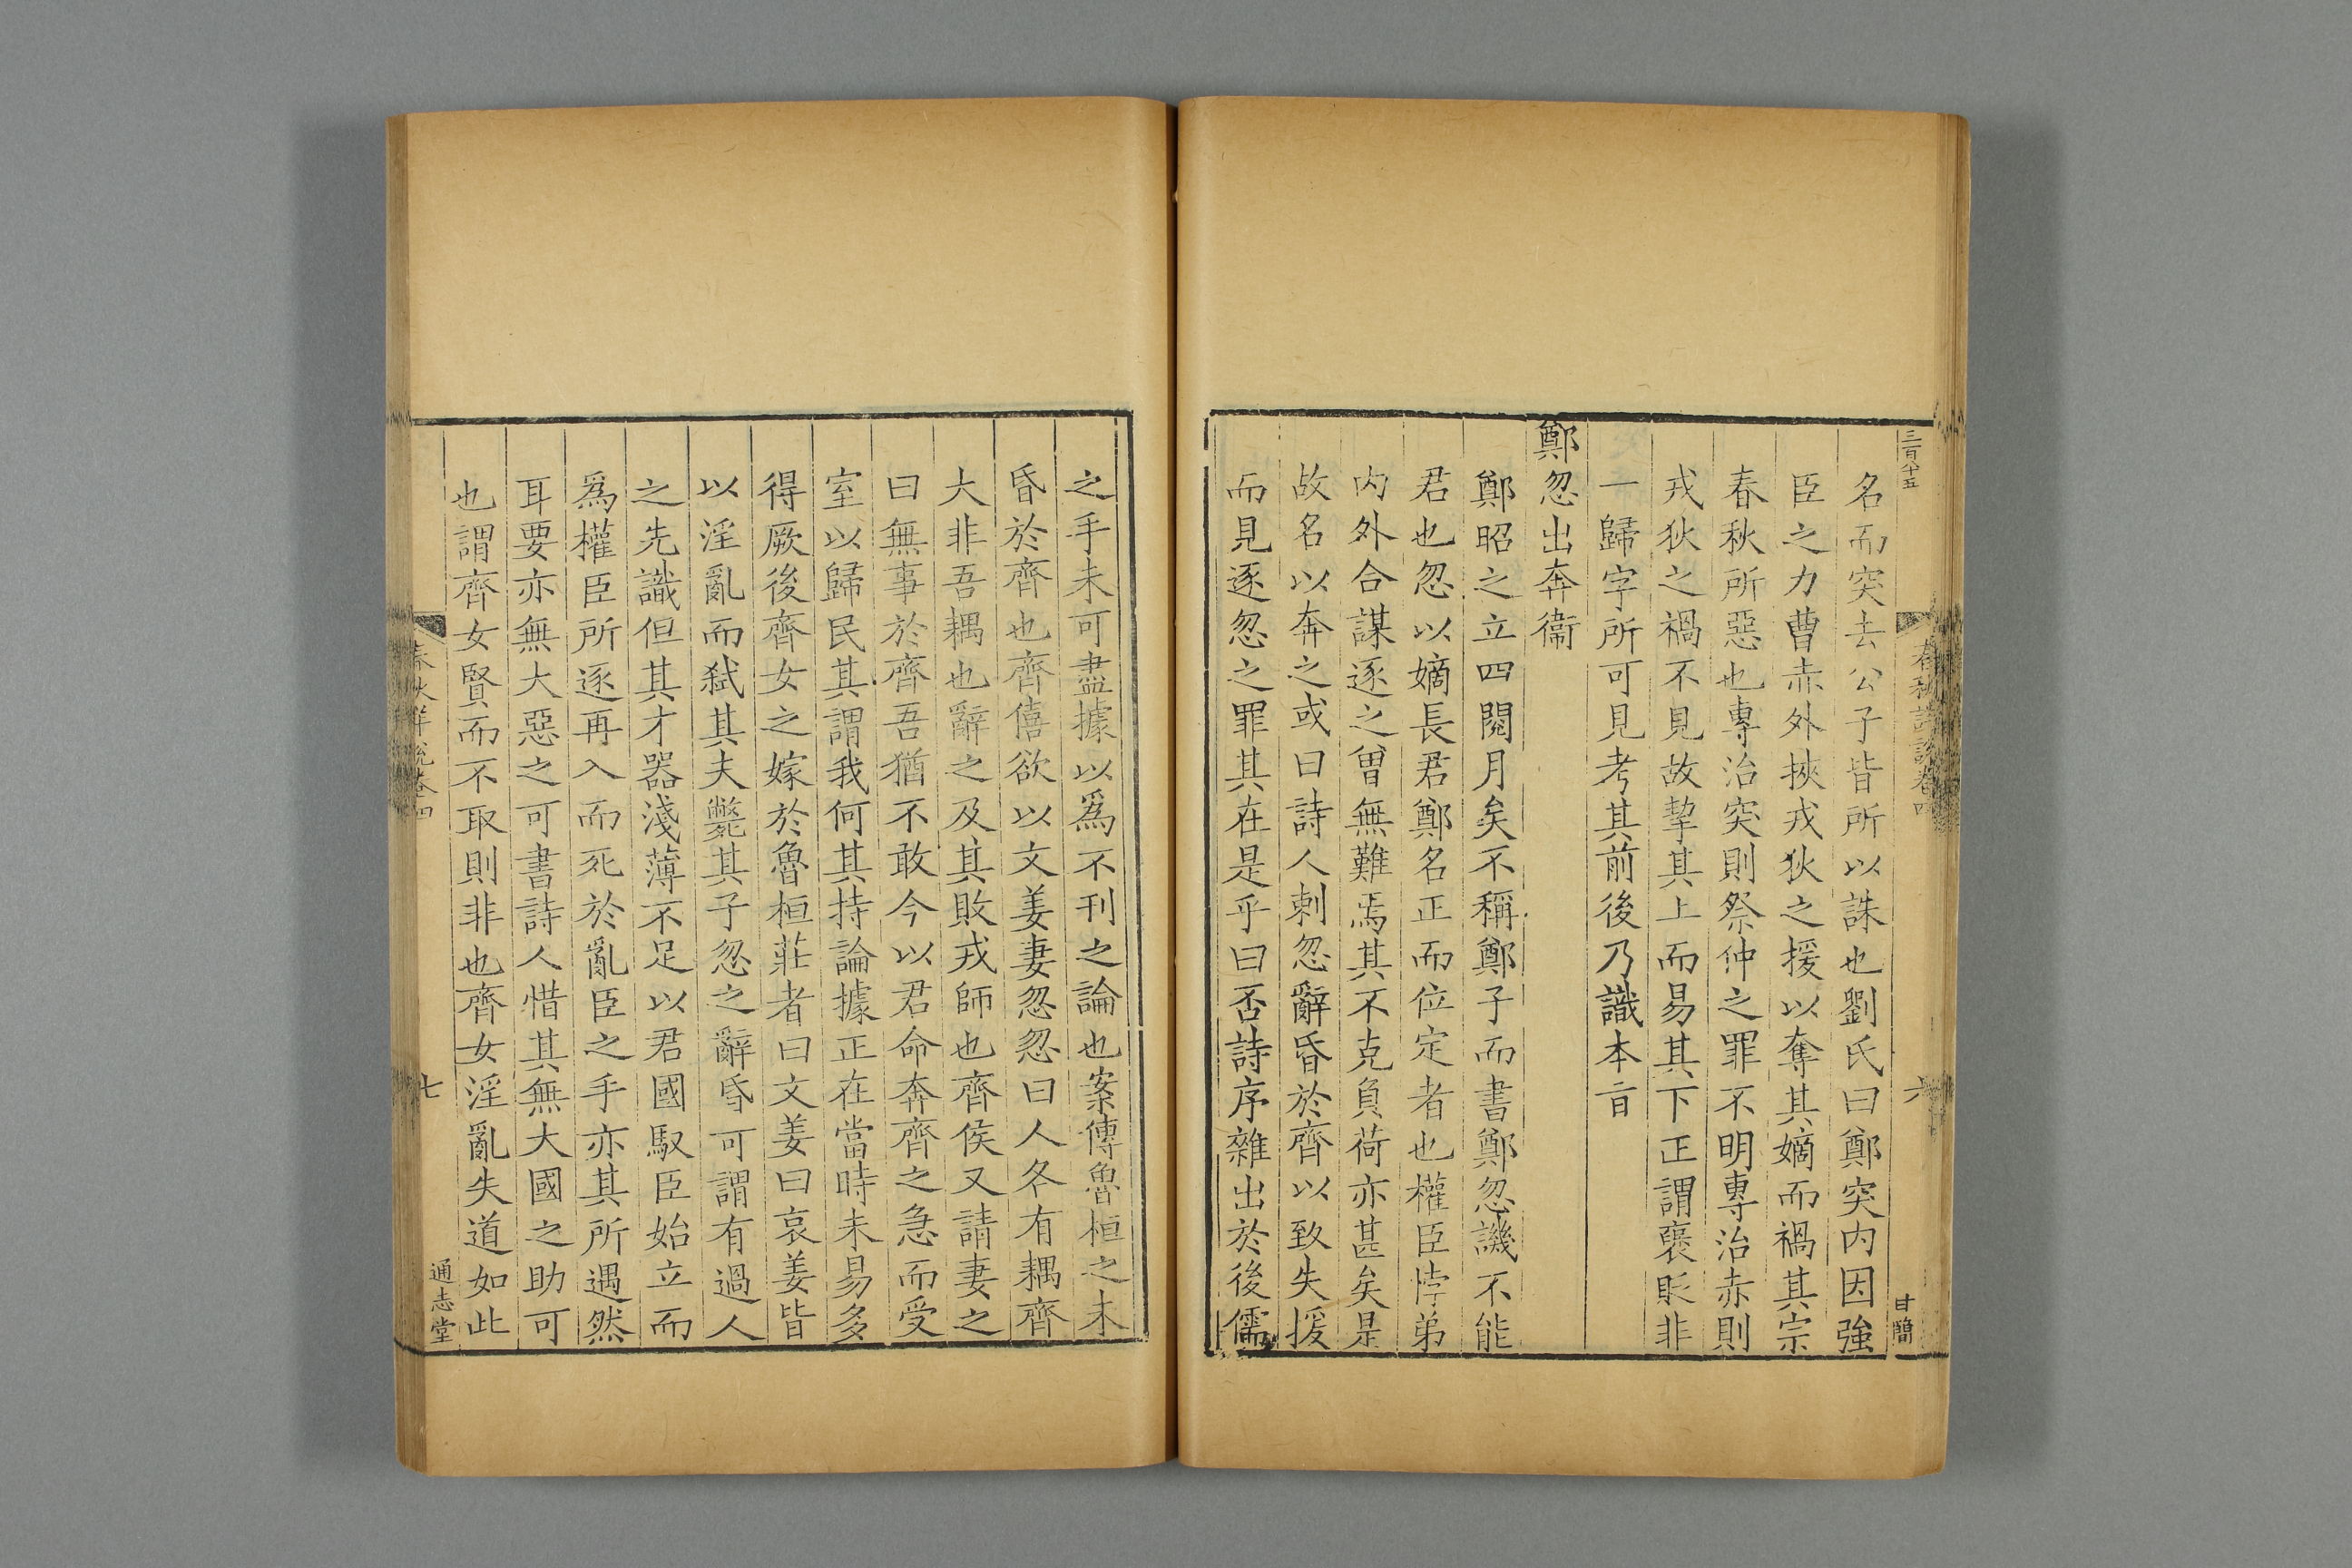 三百八十五
春秋詳說卷四
六
甘簡
名而突去公子皆所以誅也劉氏曰鄭突内因強
臣之力曹赤外挾戎狄之援以奪其嫡而禍其宗
春秋所惡也專治突則祭仲之罪不明專治赤則
戎狄之禍不見故挈其上而易其下正謂襃貶非
一歸字所可見考其前後乃識本㫖
鄭忽出奔衞
鄭昭之立四閱月矣不稱鄭子而書鄭忽譏不能
君也忽以嫡長君鄭名正而位定者也權臣悖弟
内外合謀逐之曾無難焉其不克負荷亦甚矣是
故名以奔之或曰詩人刺忽辭昏於齊以致失援
而見逐忽之罪其在是乎曰否詩序雜出於後儒
之手未可盡據以爲不刋之論也案傳魯桓之未
昏於齊也齊僖欲以文姜妻忽忽曰人各有耦齊
大非吾耦也辭之及其敗戎師也齊侯又請妻之
曰無事於齊吾猶不敢今以君命奔齊之急而受
室以歸民其謂我何其持論據正在當時未易多
得厥後齊女之嫁於魯桓莊者曰文姜曰哀姜皆
以淫亂而弑其夫斃其子忽之辭昏可謂有過人
之先識但其才器淺薄不足以君國馭臣始立而
爲權臣所逐再入而死於亂臣之手亦其所遇然
耳要亦無大惡之可書詩人惜其無大國之助可
也謂齊女賢而不取則非也齊女淫亂失道如此
春秋詳說卷四
七
通志堂